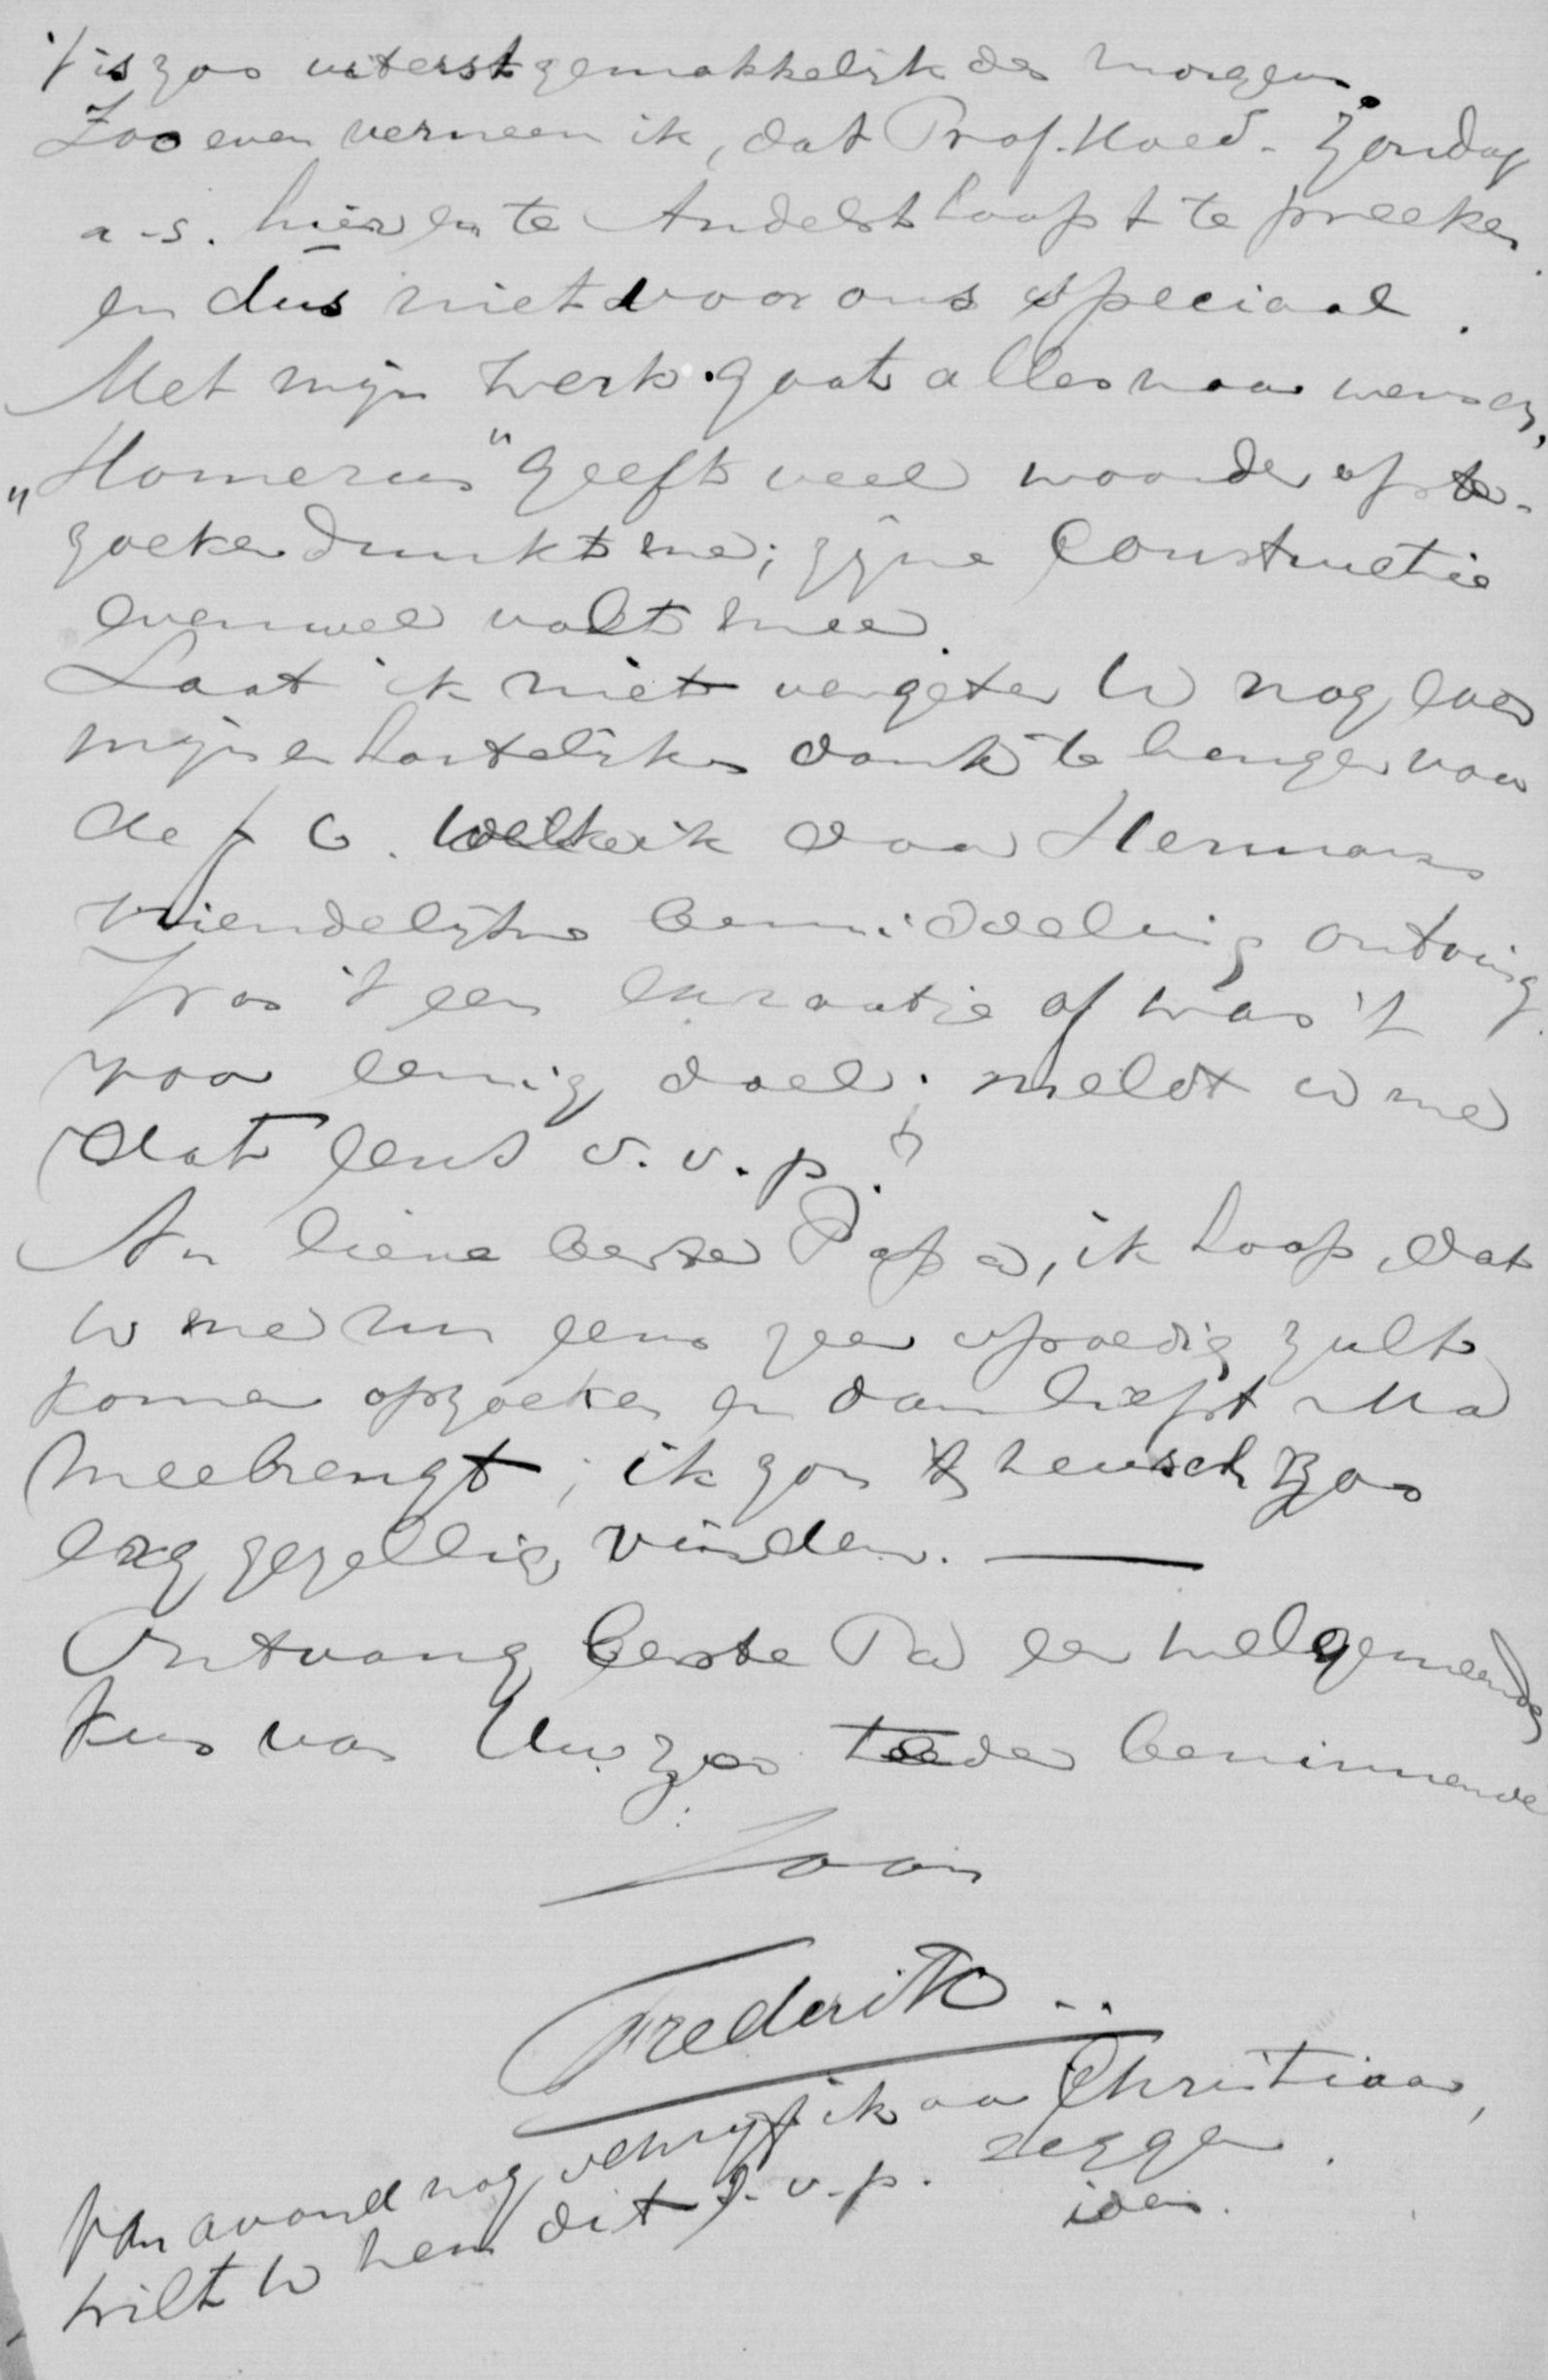 't is zoo uiterst gemakkelijk des morgens.
Zoo even verneem ik, dat Prof. Hoed. Zondag
a-s. hier en te Andelst hoopt te preeken
en dus niet voor ons speciaal.
Met mijn werk gaat alles naar wensch,
„Homerus" geeft veel woorden op te
zoeken dunkt me; zijne Constructie
evenwel valt mee.
Laat ik niet vergeten U nog even
mijn hartelijken dank te brengen voor
de f 6. welke ik door Hermans
vriendelijke bemiddeling ontving.
Was 't een extraatje of was 't
voor eenig doel; meldt U me
dat eens s.v.p.?
Nu lieve beste Papa, ik hoop, dat
U me nu eens zeer spoedig zult
komen opzoeken en dan liefst Ma
meebrengt; ik zou 't heusch zoo
erg gezellig vinden. —
Ontvang beste Pa een welgemeenden
kus van Uw zoo teeder beminnende
Zoon
Frederik..
Van avond nog schrijf ik aan Christiaan,
wilt U hem dit s.v.p. zeggen.